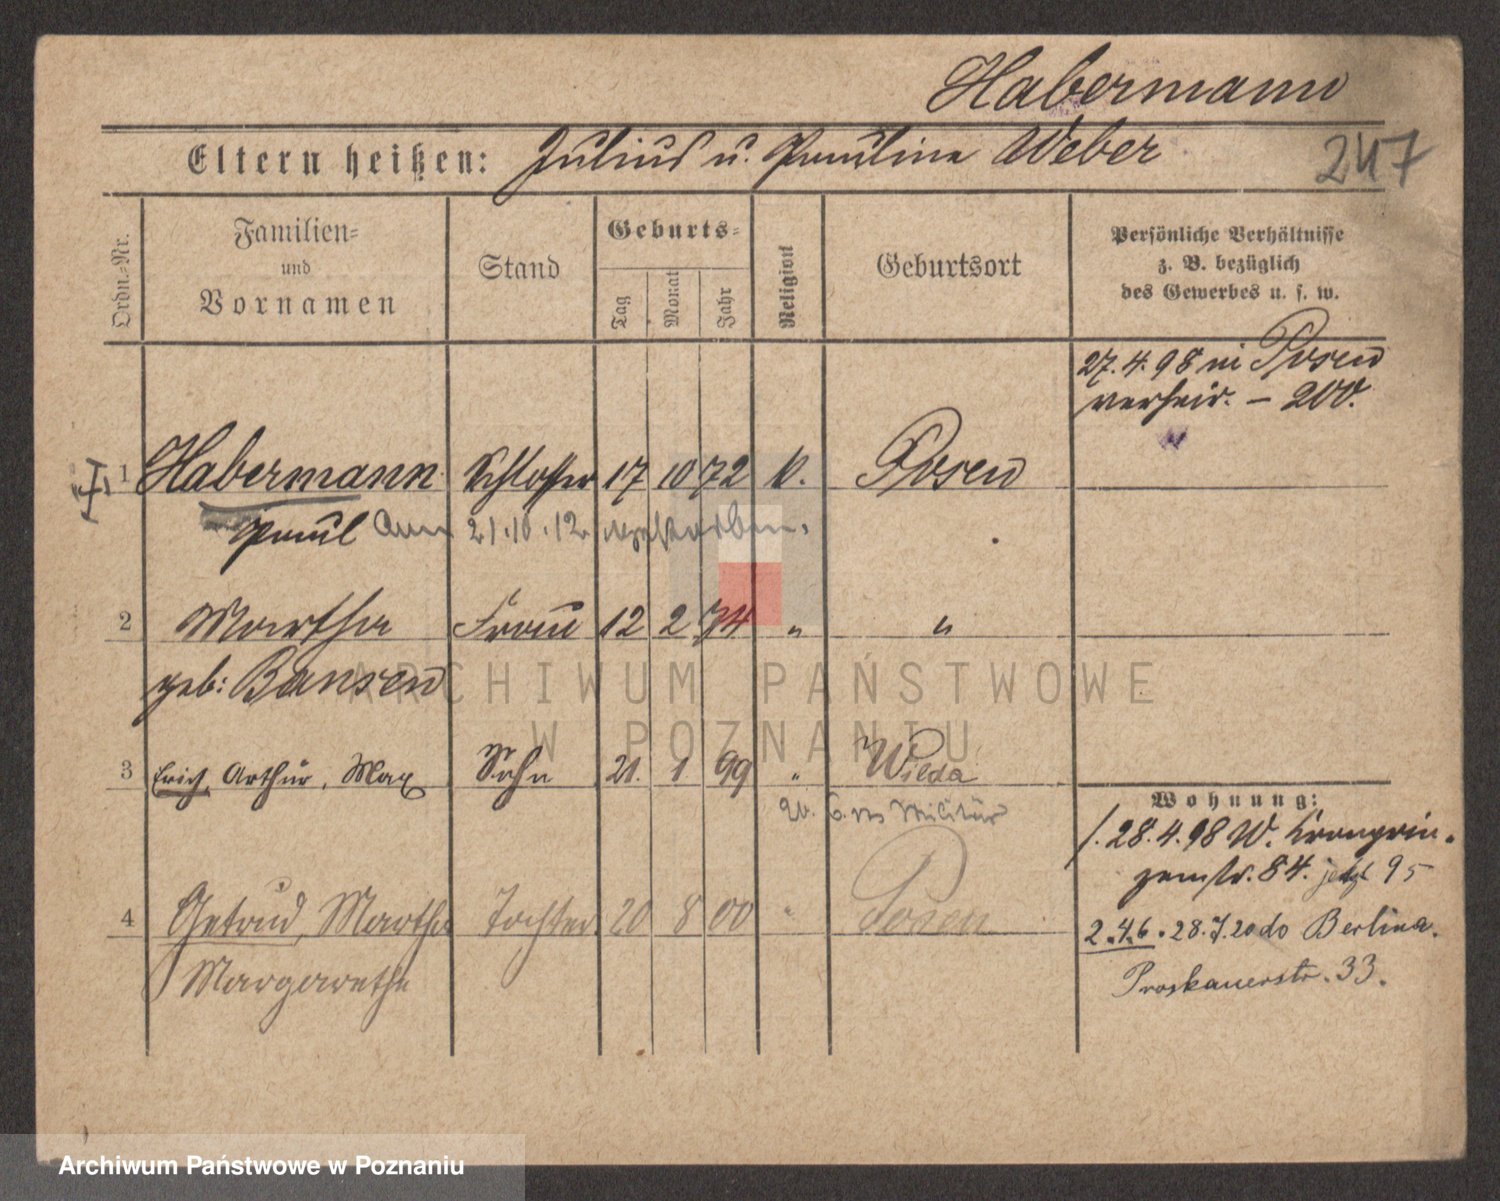 Habermann
Eltern heißen: Julius u. Pauline Weber
247
Ordn.-Nr.
Familien-
und
Vornamen
Stand
Geburts-
Tag
Monat
Jahr
Religion
Geburtsort
Persönliche Verhältnisse
z. B. bezüglich
des Gewerbes u. s. w.
27.4.98 in Posen
verheir. – 200.
1 Habermann Schlosser 17 10 72 k. Posen
Paul am 21.10.12 verstorben.
2 Martha Frau 12 2 74 " "
geb: Bansen
3 Erich, Arthur, Max Sohn 21. 1 99 " Wilda
Militär
Wohnung:
1. 28.4.98 W. Kronprin-
zenstr. 84. jetzt 95
4 Getrud, Martha Tochter 20 8 00 " Posen
Margarethe
2.46. 28.7.20 do Berlin
Proskauerstr. 33.
ARCHIWUM PAŃSTWOWE
W POZNANIU
Archiwum Państwowe w Poznaniu